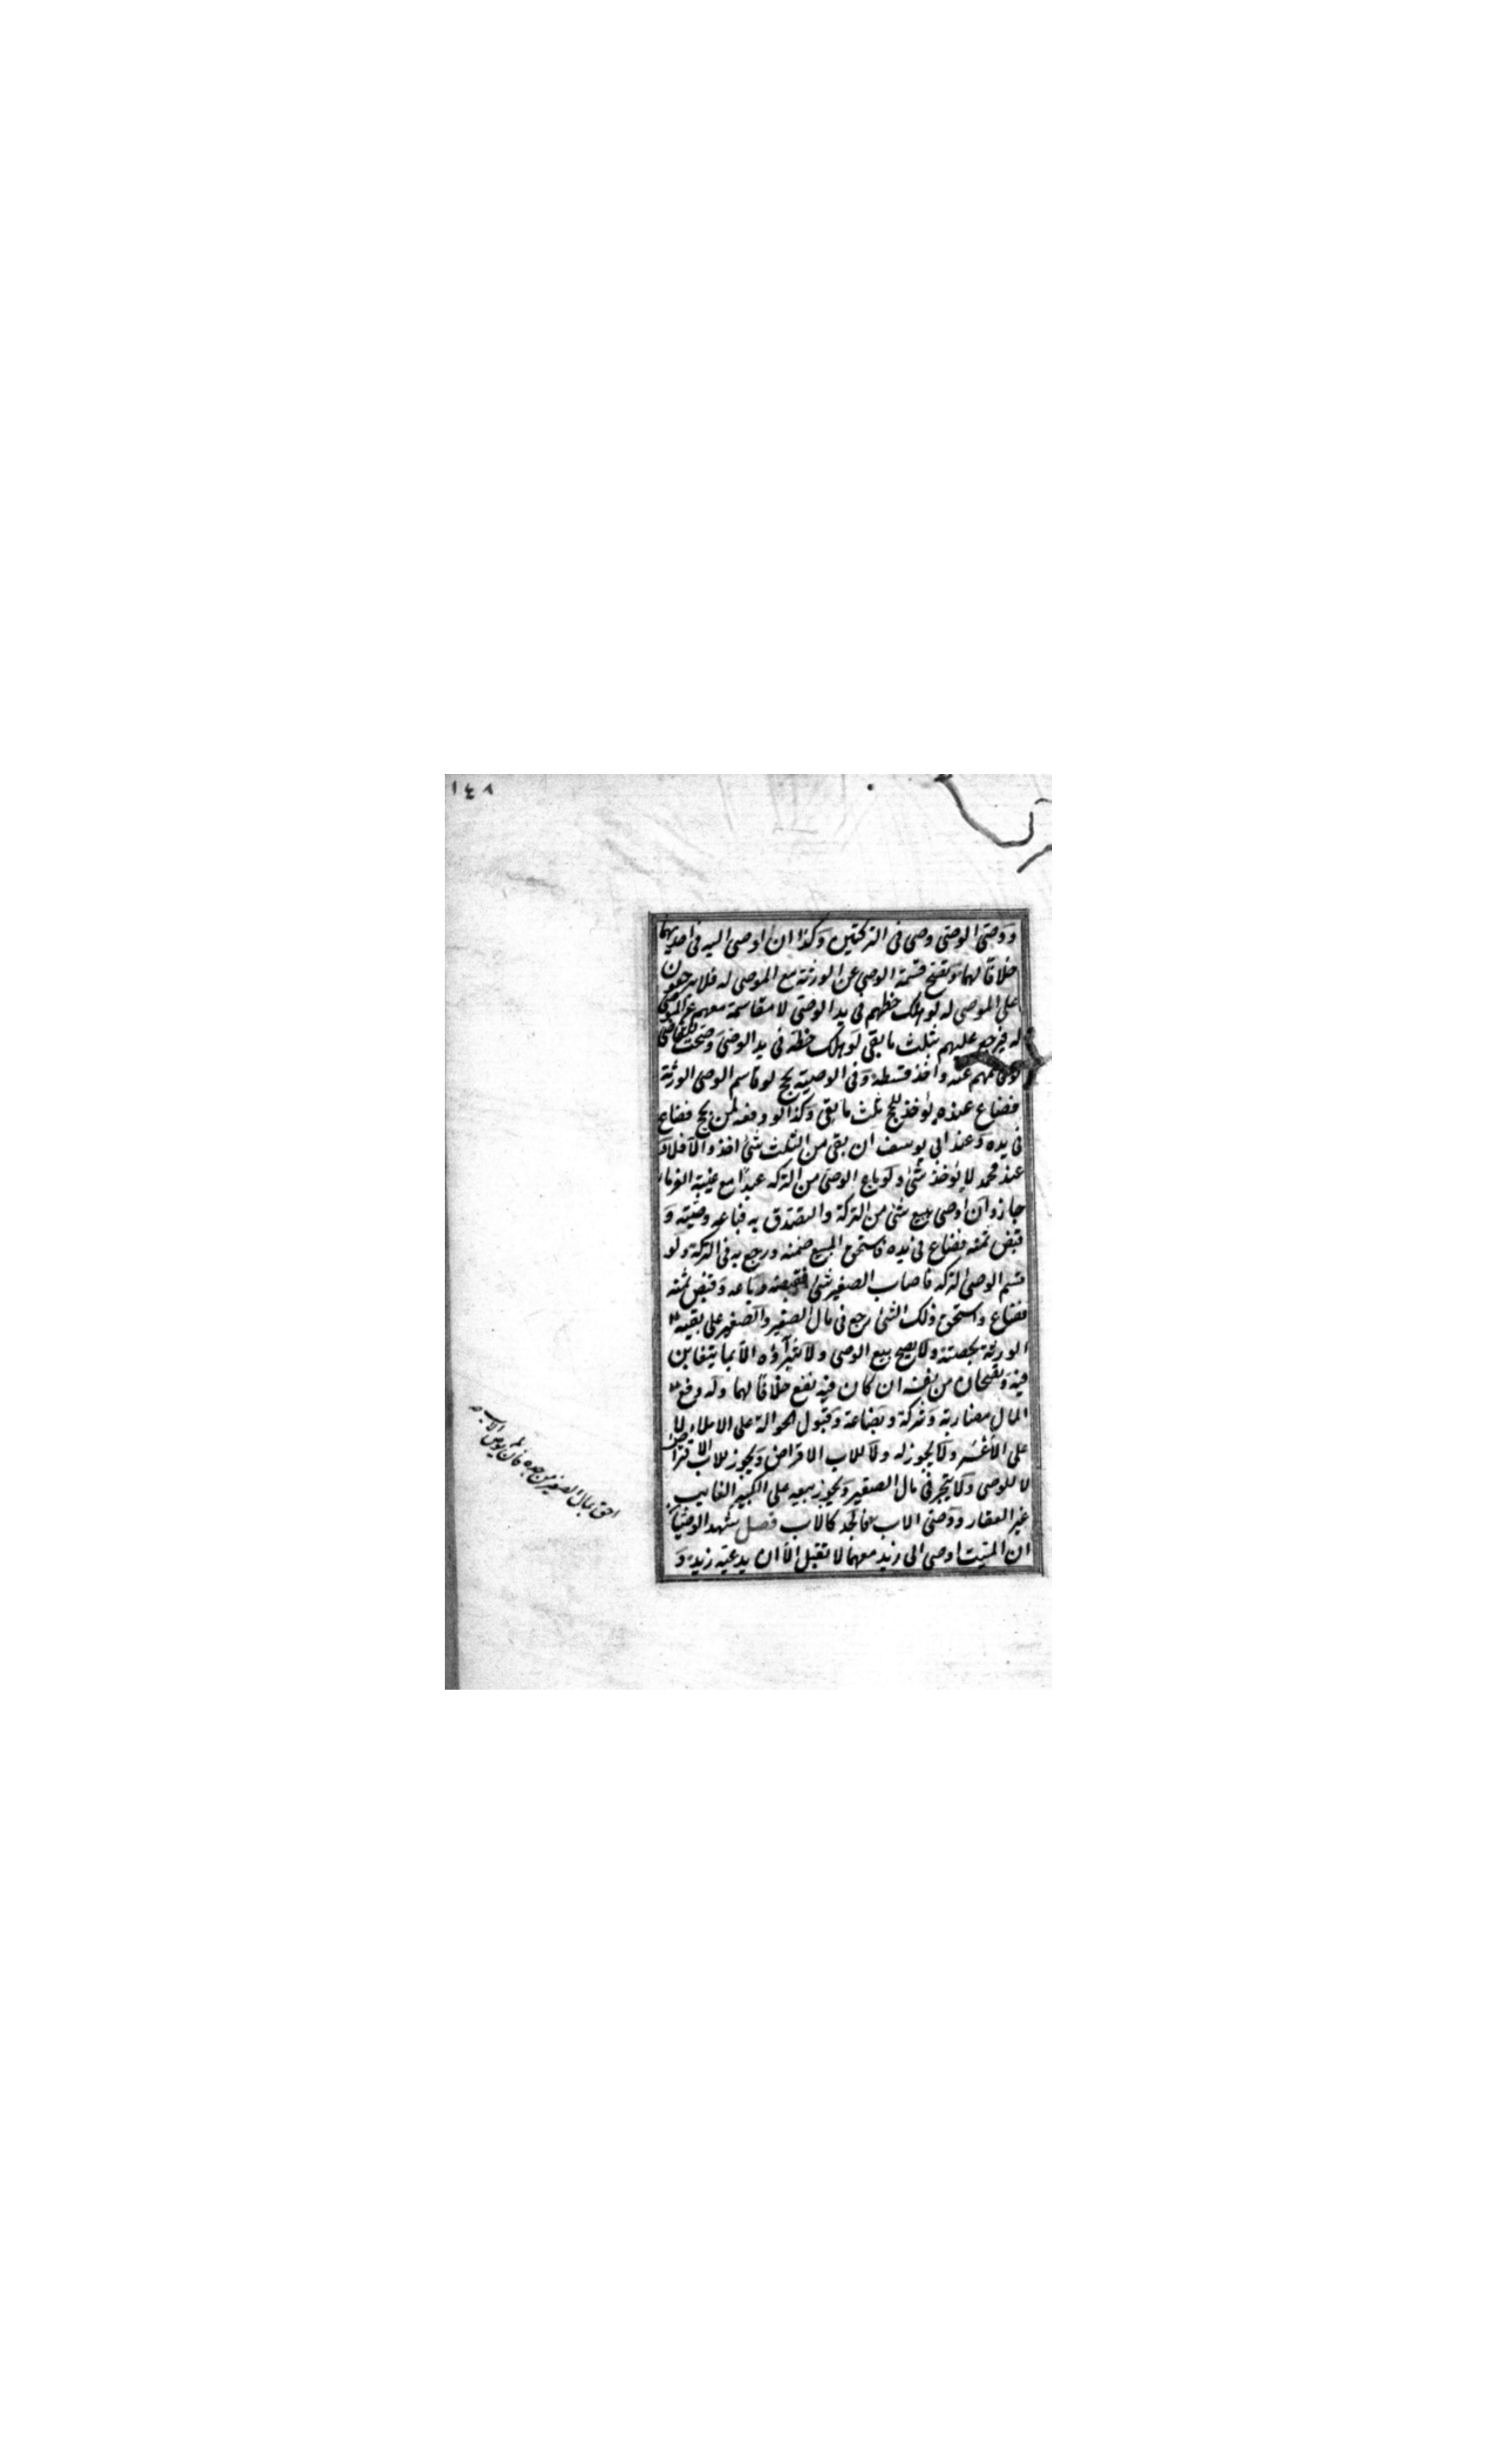 ١٤٨
ووصى الوصى وصى فى التركتين وكذا ان اوصى اليه فى احديهما
خلافا لهما وتصح قسمة الوصى عن الورثة مع الموصى له فلا يرجعون
على الموصى له لو هلك حظهم فى يد الوصى لا مقاسمته معهم عن الموصى
له فيرجع عليهم بثلث ما بقى لو هلك حظه فى يد الوصى وصحت للقاضى
لو قاسمهم عنه واخذ قسطه وفى الوصية بحج لو قاسم الوصى الورثة
فضاع عنده يؤخذ للحج ثلث ما بقى وكذا لو دفعه لمن يحج فضاع
فى يده وعند ابى يوسف ان بقى من الثلث شئ اخذ والا فلا و
عند محمد لا يؤخذ شئ ولو باع الوصى من التركه عبدا مع غيبة الغرماء
جاز وان اوصى ببيع شئ من التركة والتصدق به فباعه وصيته و
قبض ثمنه فضاع فى يده فاستحق المبيع ضمنه ورجع به فى التركة ولو
قسم الوصى التركه فاصاب الصغير شئ فقبضه وباعه وقبض ثمنه
فضاع واستحق ذلك الشئ رجع فى مال الصغير والصغير على بقية
الورثة بحصته ولا يصح بيع الوصى ولا شراؤه الا بما يتغابن
فيه ويصحان من نفسه ان كان فيه نفع خلافا لهما وله دفع
المال مضاربة وشركة وبضاعة وقبول الحوالة على الاملاء لا
على الاعسر ولا يجوز له ولا للاب الاقراض ويجوز للاب الاقتراض
لا للوصى ولا يتجر فى مال الصغير ويجوز بيعه على الكبير الغايب
غير العقار ووصى الاب كالاب فصل شهد الوصيان
ان الميت اوصى الى زيد معهما لا تقبل الا ان يدعيه زيد و
احق بمال الصغير من جده فان لم يوص الاب